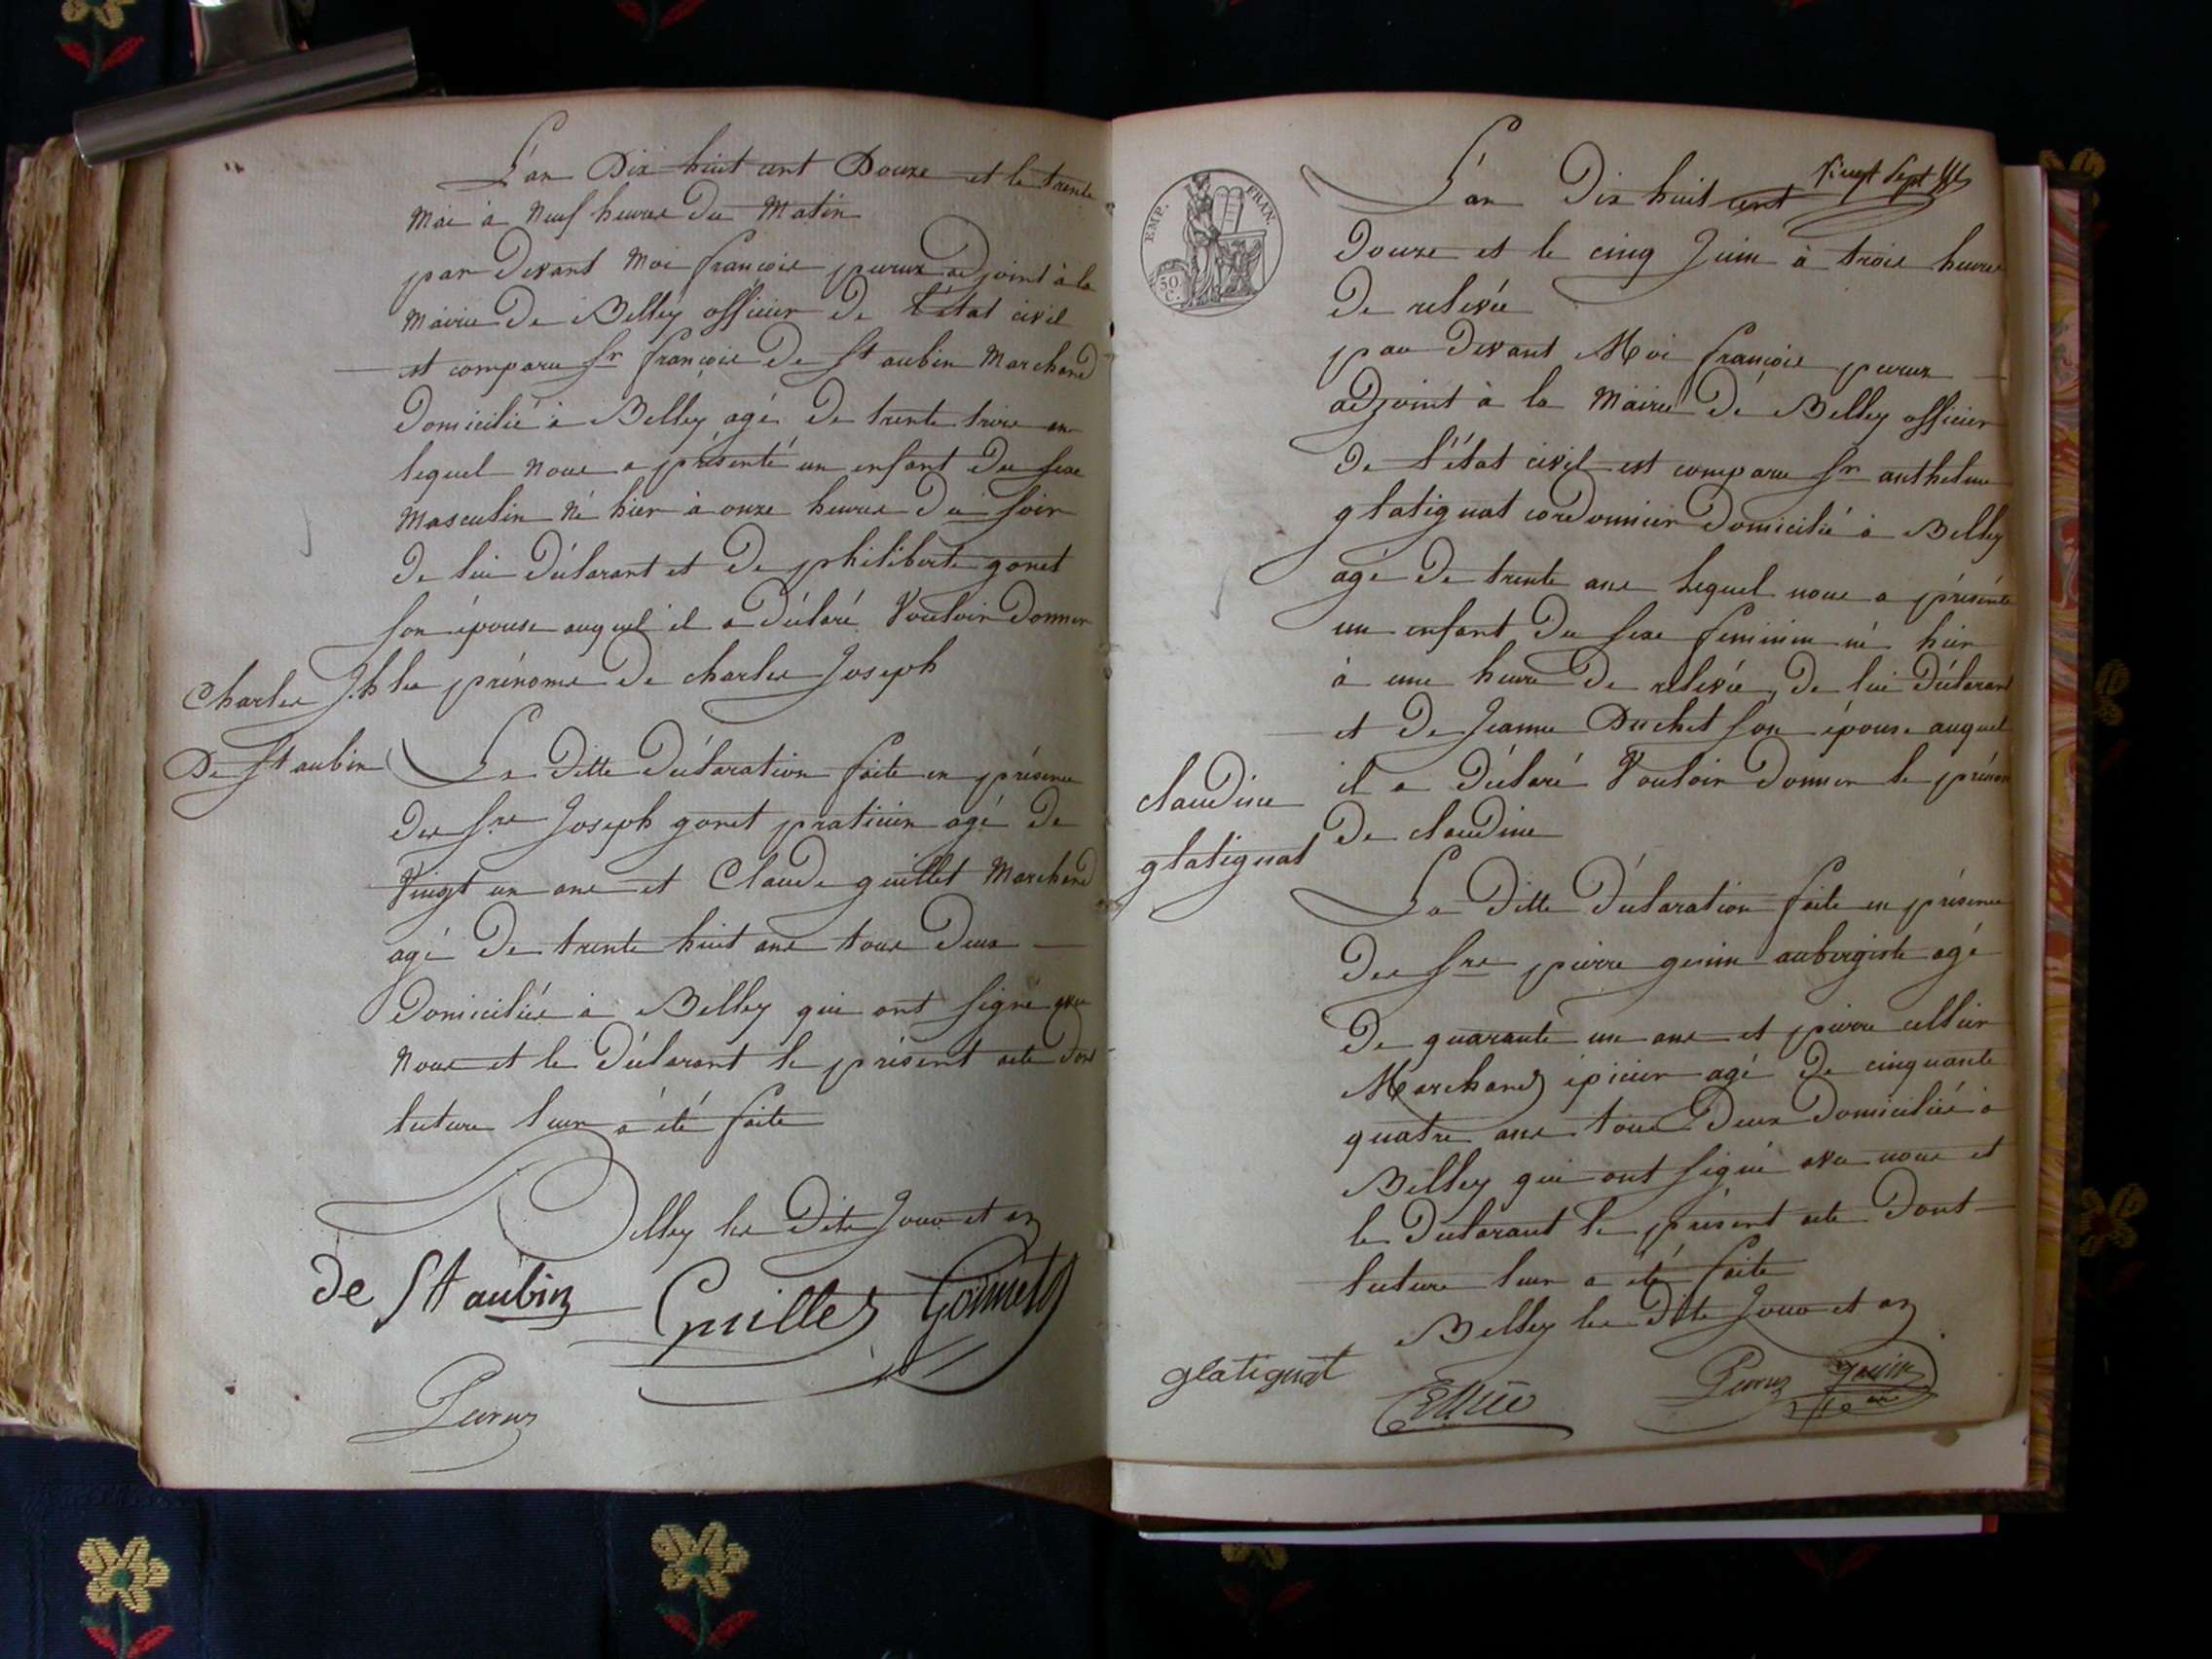 L'an Dix huit cent Douze et le trente
Mai à Neuf heures Du Matin
par Devant Moi françois peruz adjoint à la
Mairie De Belley officier De l'état civil
est comparu Sr françois De St aubin Marchand
Domicilié à Belley agé De trente trois ans
lequel nous a présenté un enfant Du sexe
Masculin Né hier à onze heures Du soir
De lui Déclarant et De philiberte gonet
son épouse auquel il a Déclaré Vouloir Donner
les prénoms De charles Joseph
Charles J.h
De St aubin
La Ditte Déclaration faite en présence
Des Srs Joseph gonet praticien agé De
Vingt un ans et Claude guillet Marchand
agé De trente huit ans tous Deux
Domiciliés à Belley qui ont signé avec
Nous et le Déclarant le présent acte Dont
lecture leur a été faite
Belley les Dits Jour et an
de St aubin Guillet Gonnet
Peruz
EMP. FRAN.
50 C.
Vingt Sept
L'an Dix huit cent
Douze et le cinq Juin à trois heures
De relevée
par Devant Moi françois peruz
adjoint à la Mairie De Belley officier
De l'état civil est comparu Sr anthelme
glatignat cordonnier Domicilié à Belley
agé De trente ans Lequel nous a présenté
un enfant Du sexe feminin né hier
à une heure De relevée, De lui Déclarant
et De Jeanne Duchet son épouse auquel
il a Déclaré Vouloir Donner le prénom
De claudine
claudine
glatignat
La Ditte Déclaration faite en présence
Des Srs pierre genin aubergiste agé
De quarante un ans et pierre cellier
Marchand épicier agé De cinquante
quatre ans tous Deux Domiciliés à
Belley qui ont signé avec nous et
le Déclarant le présent acte Dont
lecture leur a été faite
Belley les Dits Jour et an
glatignat Peruz